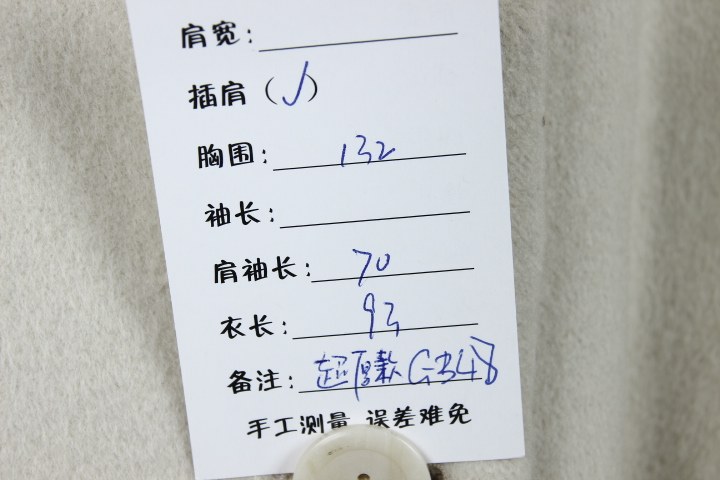 肩宽：
插肩（√）
胸围：132
袖长：
肩袖长：70
衣长：93
备注：超厚款 GB48
手工测量 误差难免